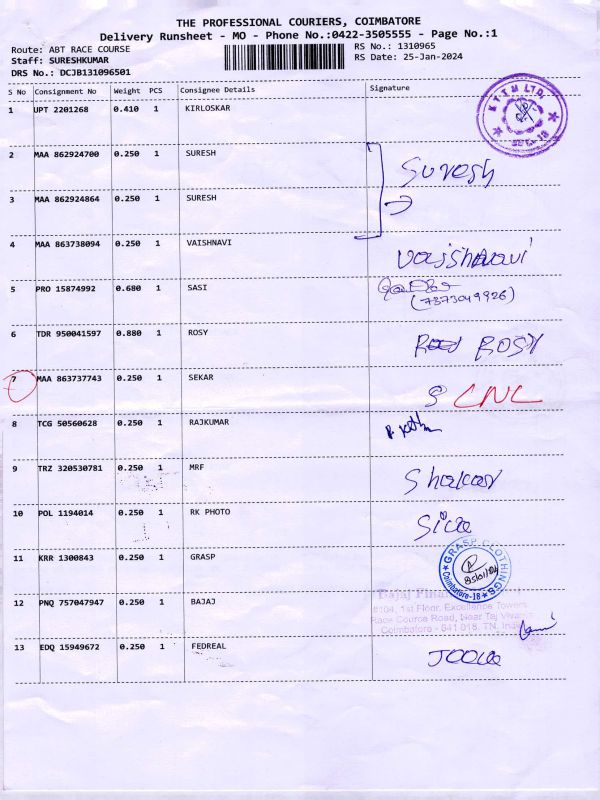 THE PROFESSIONAL COURIERS, COIMBATORE
Delivery Runsheet - MO - Phone No.:0422-3505555 - Page No.:1
Route: ABT RACE COURSE
RS No.: 1310965
Staff: SURESHKUMAR
RS Date: 25-Jan-2024
DRS No.: DCJB131096501
S No Consignment No Weight PCS Consignee Details Signature
1 UPT 2201268 0.410 1 KIRLOSKAR
KTTM LTD.
2 MAA 862924700 0.250 1 SURESH
Suresh
3 MAA 862924864 0.250 1 SURESH
4 MAA 863738094 0.250 1 VAISHNAVI
Vaishnavi
5 PRO 15874992 0.680 1 SASI
(7373049926)
6 TDR 950041597 0.880 1 ROSY
ROSY
7 MAA 863737743 0.250 1 SEKAR
S CNL
8 TCG 50560628 0.250 1 RAJKUMAR
9 TRZ 320530781 0.250 1 MRF
10 POL 1194014 0.250 1 RK PHOTO
11 KRR 1300843 0.250 1 GRASP
GRASP CLOTHINGS
Coimbatore-18
12 PNQ 757047947 0.250 1 BAJAJ
Bajaj
#104, 1st Floor, Excellence Towers
Race Cource Road, Near Taj Vivanta
Coimbatore - 641 018. TN. India
13 EDQ 15949672 0.250 1 FEDREAL